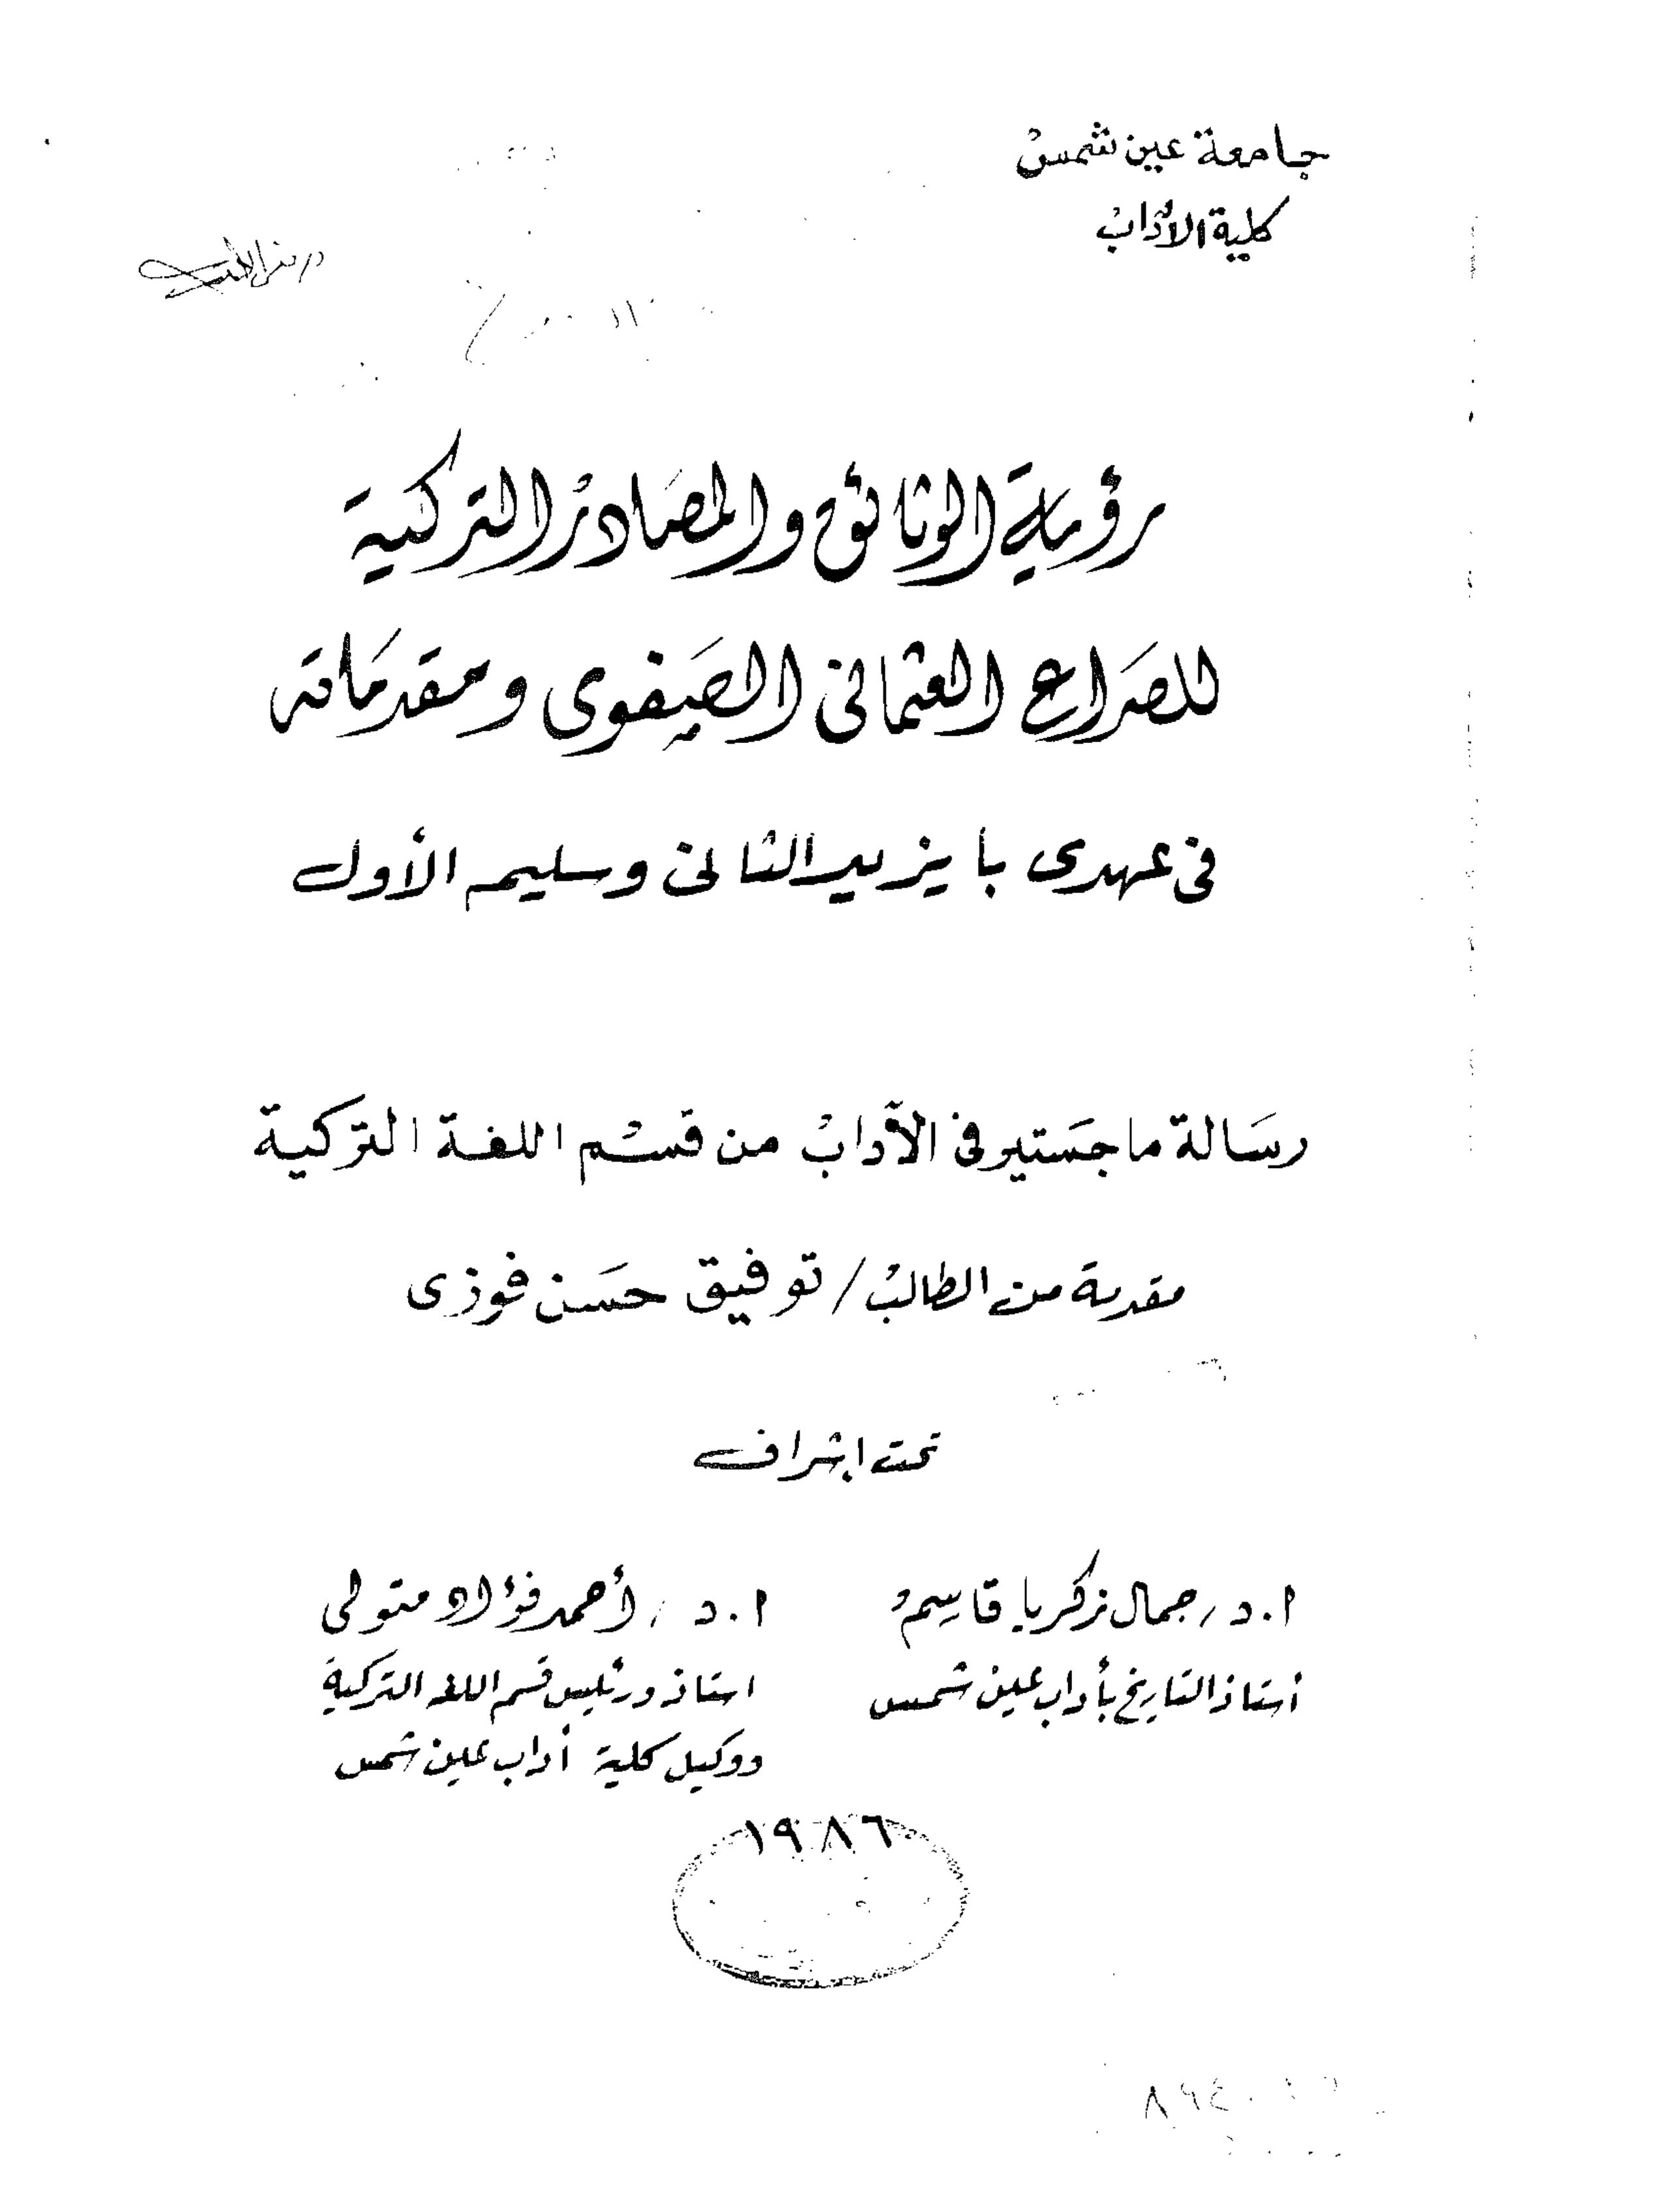 جامعة عين شمس
كلية الآداب
رؤية الوثائق والمصادر التركية
للصراع العثمانى الصفوى ومقدماته
فى عهدى بايزيد الثانى وسليم الأول
رسالة ماجستير فى الآداب من قسم اللغة التركية
مقدمة من الطالب / توفيق حسن فوزى
تحت إشراف
ا.د / جمال زكريا قاسم
أستاذ التاريخ بأداب عين شمس
ا.د / أحمد فؤاد متولى
استاذ ورئيس قسم اللغة التركية
ووكيل كلية أداب عين شمس
١٩٨٦